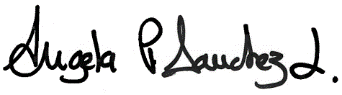 Angela P Sanchez L.